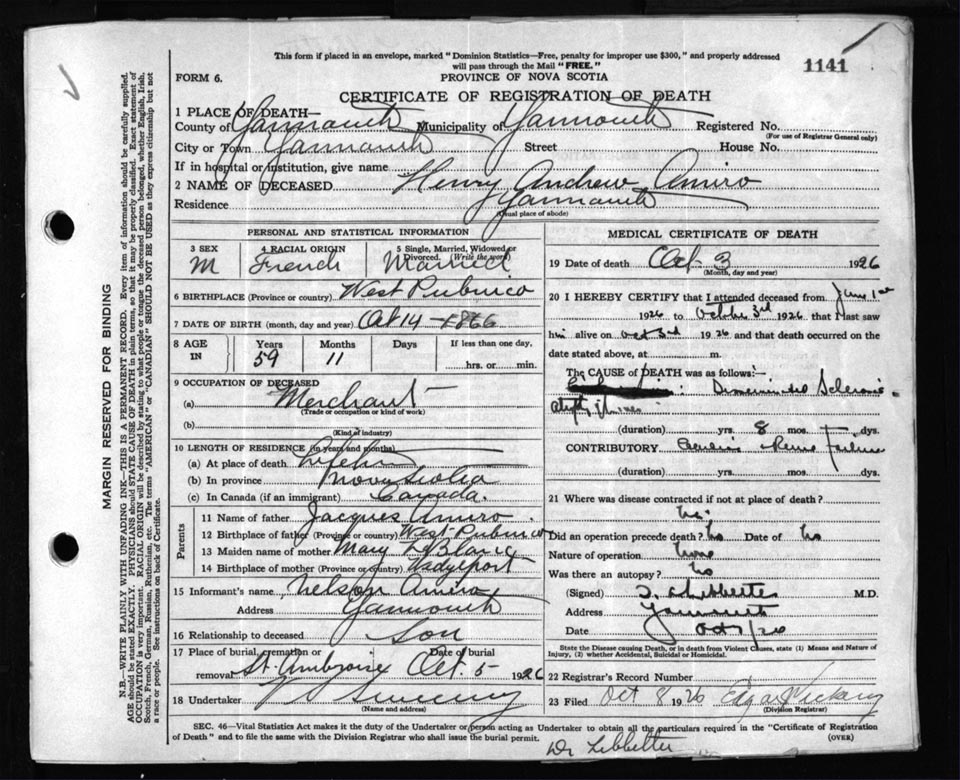 This form if placed in an envelope, marked "Dominion Statistics—Free, penalty for improper use $300," and properly addressed
will pass through the Mail "FREE."
1141
FORM 6.
PROVINCE OF NOVA SCOTIA
CERTIFICATE OF REGISTRATION OF DEATH
1 PLACE OF DEATH—
County of Yarmouth Municipality of Yarmouth Registered No.
(For use of Registrar General only)
City or Town Yarmouth Street House No.
If in hospital or institution, give name
2 NAME OF DECEASED Henry Andrew Amiro
Residence Yarmouth
(Usual place of abode)
PERSONAL AND STATISTICAL INFORMATION
3 SEX 4 RACIAL ORIGIN 5 Single, Married, Widowed or
Divorced. (Write the word)
M French Married
6 BIRTHPLACE (Province or country) West Pubnico
7 DATE OF BIRTH (month, day and year) Oct 14 - 1866
8 AGE IN Years Months Days If less than one day,
59 11 hrs. or min.
9 OCCUPATION OF DECEASED
(a) Merchant
(Trade or occupation or kind of work)
(b)
(Kind of industry)
10 LENGTH OF RESIDENCE (in years and months)
(a) At place of death Lifetime
(b) In province Nova Scotia
(c) In Canada (if an immigrant) Canada.
Parents
11 Name of father Jacques Amiro
12 Birthplace of father (Province or country) West Pubnico
13 Maiden name of mother Mary LeBlanc
14 Birthplace of mother (Province or country) Wedgeport
15 Informant's name Nelson Amiro
Address Yarmouth
16 Relationship to deceased Son
17 Place of burial, cremation or Date of burial
removal St. Ambroise Oct. 5 1926
18 Undertaker V S Sweeny
(Name and address)
MEDICAL CERTIFICATE OF DEATH
19 Date of death Oct. 3 1926
(Month, day and year)
20 I HEREBY CERTIFY that I attended deceased from June 1st
1926 to October 3rd 1926 that I last saw
him alive on Oct 3rd 1926 and that death occurred on the
date stated above, at m.
The CAUSE of DEATH was as follows:—
Disseminated Sclerosis
(duration) yrs. 8 mos. dys.
CONTRIBUTORY Failure
(duration) yrs. mos. dys.
21 Where was disease contracted if not at place of death?
Did an operation precede death? No Date of No
Nature of operation None
Was there an autopsy? No
(Signed) M.D.
Address Yarmouth
Date
State the Disease causing Death, or in death from Violent Causes, state (1) Means and Nature of
Injury, (2) whether Accidental, Suicidal or Homicidal.
22 Registrar's Record Number
23 Filed Oct 8 1926 Edgar Vickery
(Division Registrar)
SEC. 46—Vital Statistics Act makes it the duty of the Undertaker or person acting as Undertaker to obtain all the particulars required in the "Certificate of Registration
of Death" and to file the same with the Division Registrar who shall issue the burial permit. (OVER)
Dr Lebbetter
MARGIN RESERVED FOR BINDING
N.B.—WRITE PLAINLY WITH UNFADING INK—THIS IS A PERMANENT RECORD. Every item of information should be carefully supplied.
AGE should be stated EXACTLY. PHYSICIANS should STATE CAUSE OF DEATH in plain terms, so that it may be properly classified. Exact statement of
OCCUPATION is very important. RACIAL ORIGIN will be described by stating to what people or tongue the deceased person belonged, whether English, Irish,
Scotch, French, German, Russian, Ruthenian, etc. The terms "AMERICAN" or "CANADIAN" SHOULD NOT BE USED as they express citizenship but not
a race or people. See instructions on back of Certificate.